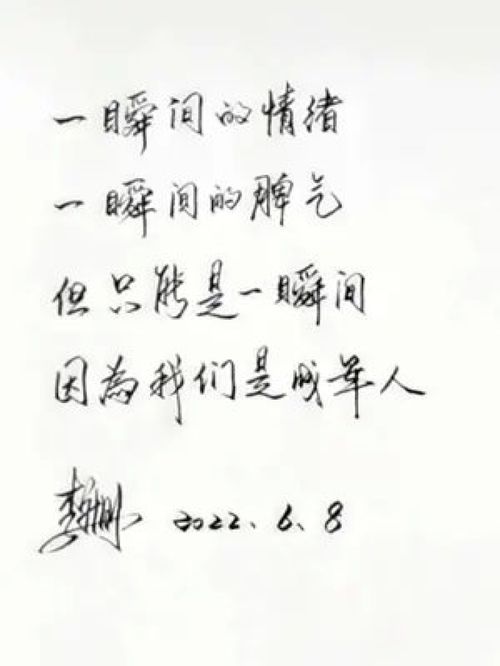 一瞬间的情绪
一瞬间的脾气
但只能是一瞬间
因為我们是成年人
2022.6.8